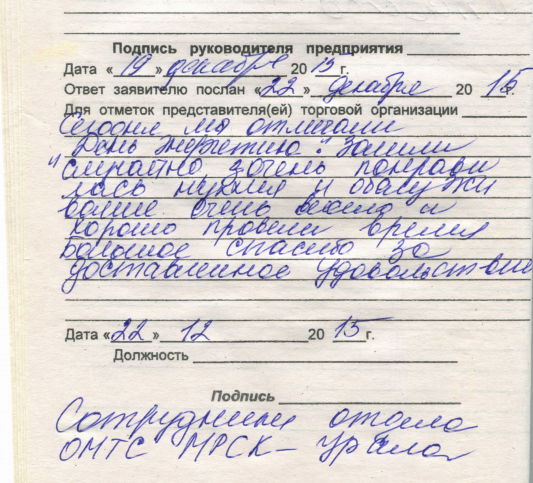 Подпись руководителя предприятия
Дата «19» декабря 2015 г.
Ответ заявителю послан «22» декабря 2015 г.
Для отметок представителя(ей) торговой организации
Сегодня мы отмечали
"День энергетика". Зашли
случайно очень понрави
лась кухня и обслужи
вание очень весело и
хорошо провели время
Большое спасибо за
доставленное удовольствие
Дата «22» 12 2015 г.
Должность
Подпись
Сотрудники отдела
ОМТС МРСК - Урала